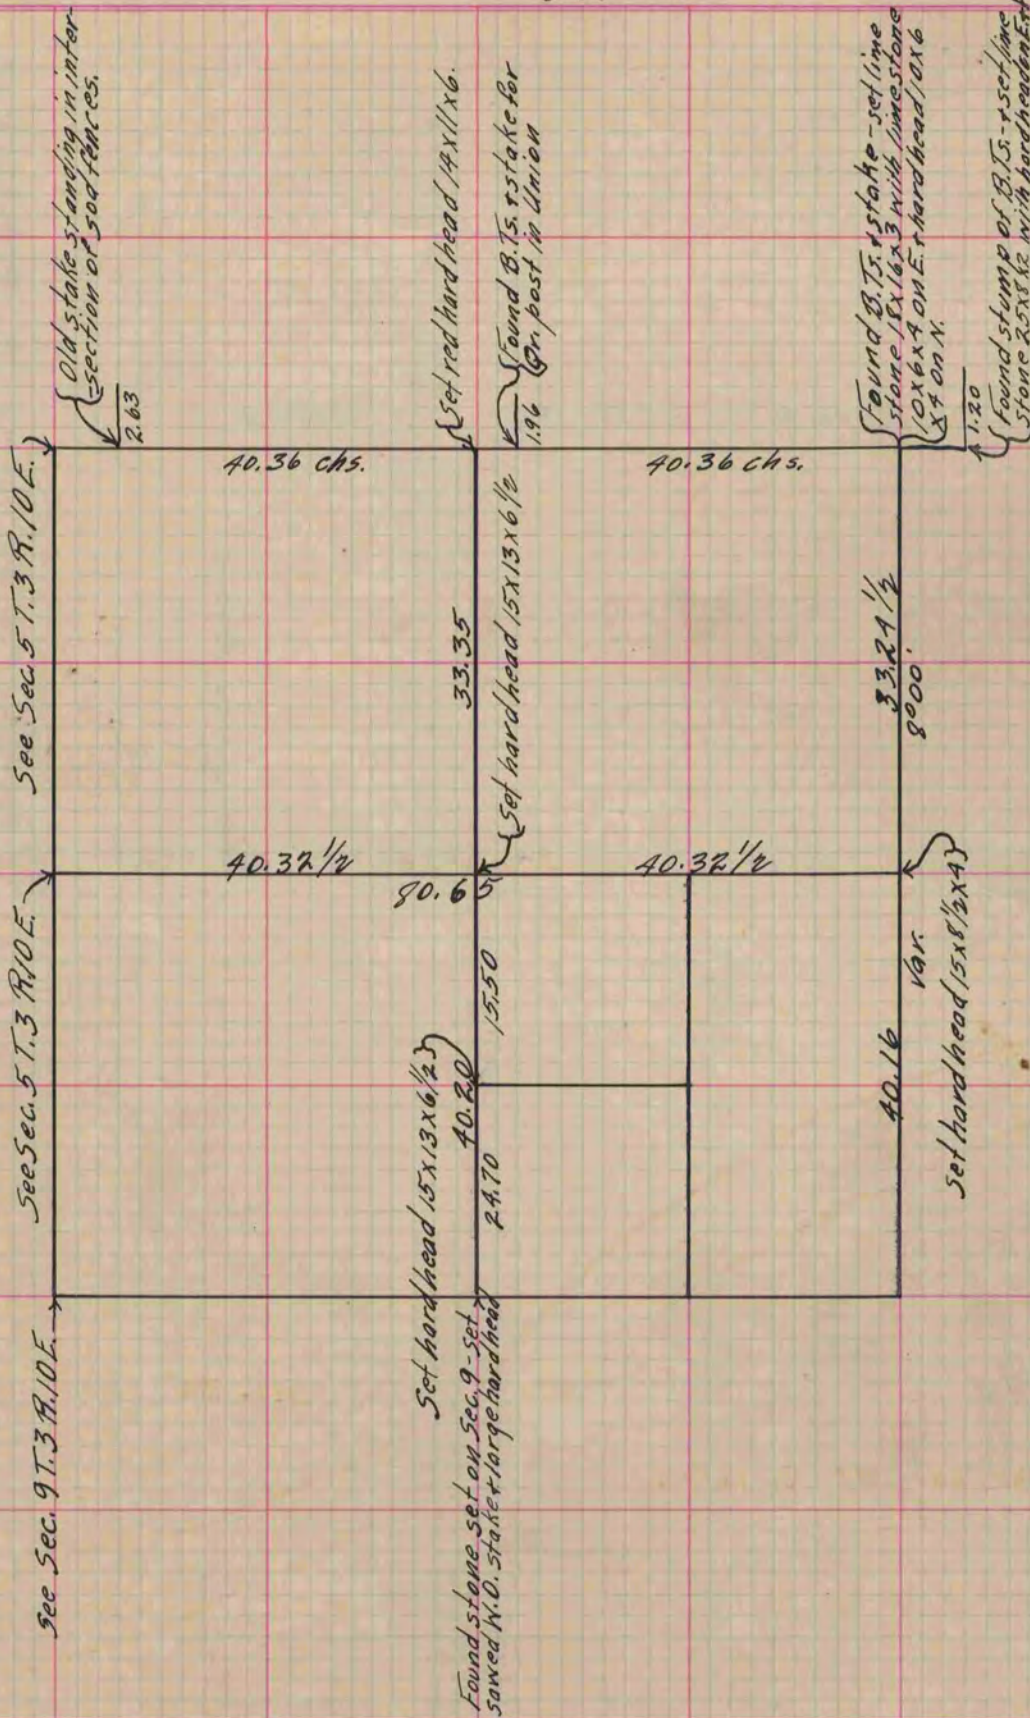 Old stake standing in inter-
section of sod fences.
2.63
See Sec. 5 T. 3 R. 10 E.
40.36 chs.
Set red hard head 14 x 11 x 6.
Found B.Ts. + stake for
Qr. post in Union
1.96
40.36 chs.
Found B.Ts. + stake - set lime
stone 18 x 16 x 3 with limestone
10 x 6 x 4 on E. + hard head 10 x 6
x 4 on N.
1.20
Found stump of B.Ts. + set lime
stone 25 x 8 x 2 with hard head on E. +
33.35
Set hard head 15 x 13 x 6 1/2
33.24 1/2
8°00'
See Sec. 5 T. 3 R. 10 E.
40.32 1/2
80.65
40.32 1/2
Var.
Set hard head 15 x 8 1/2 x 4
15.50
40.20
Set hard head 15 x 13 x 6 1/2
24.70
40.16
See Sec. 9 T. 3 R. 10 E.
Found stone set on Sec. 9 - set
sawed W.O. stake + large hard head